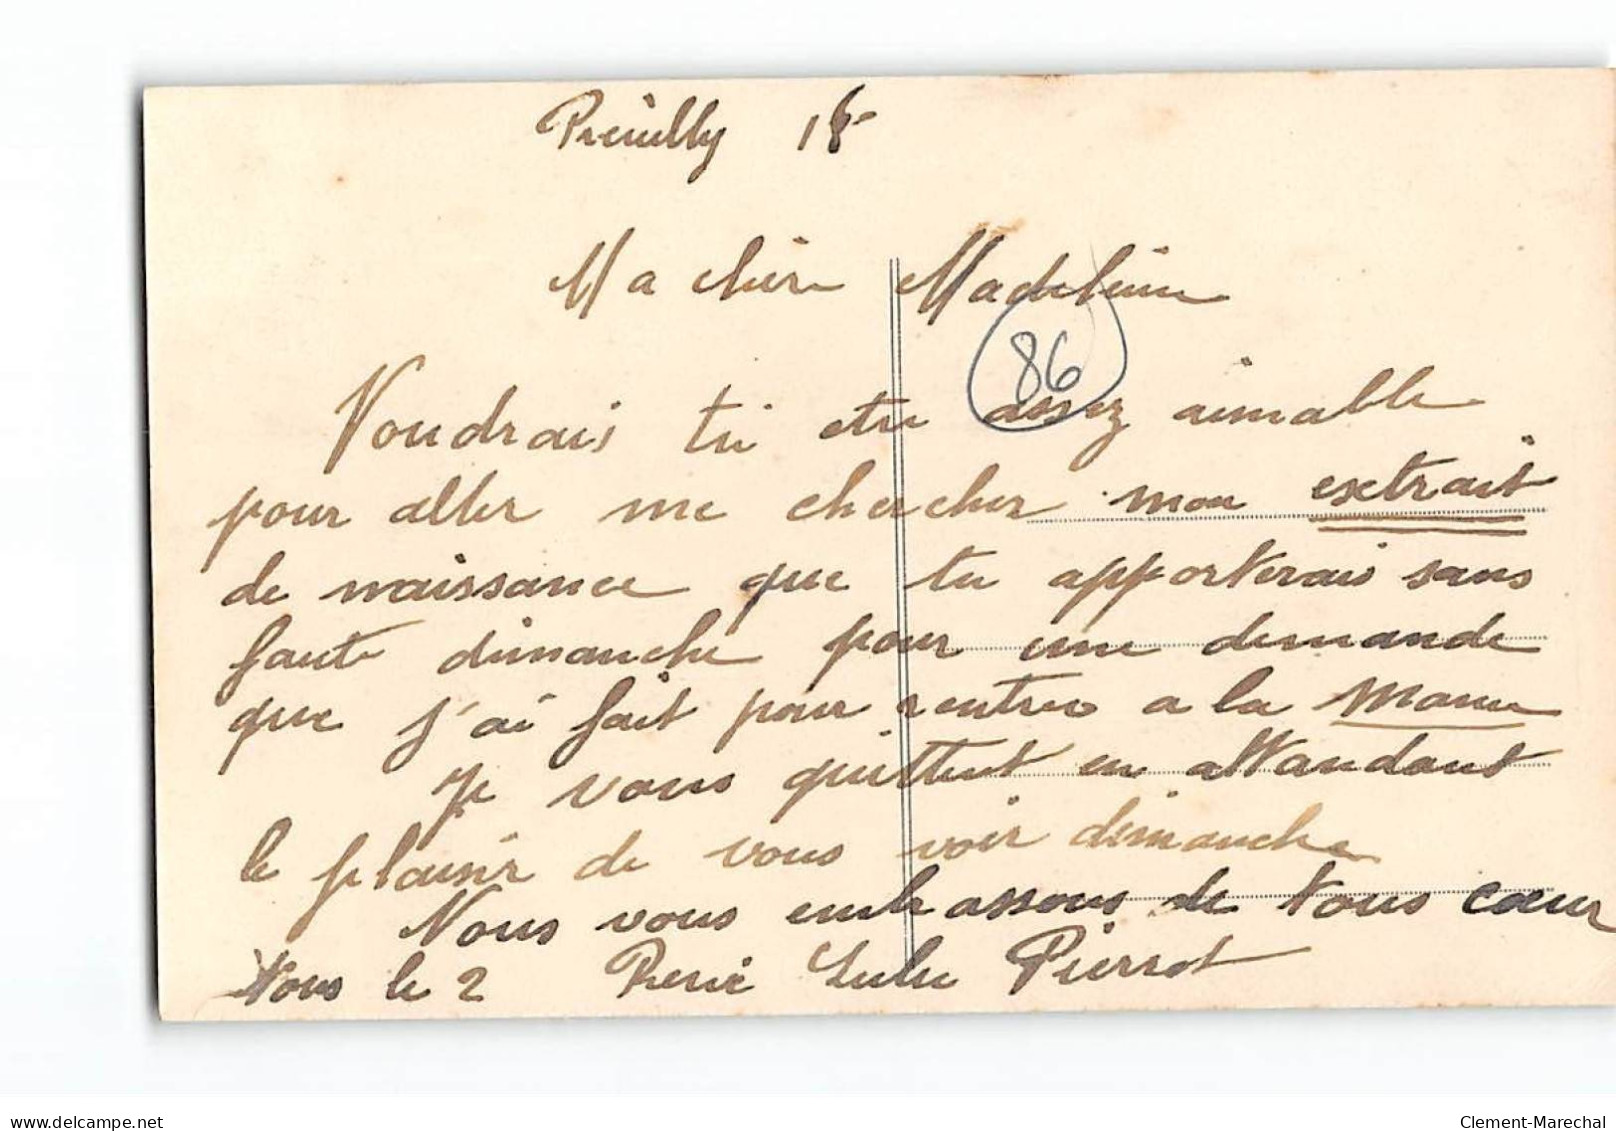 Preuilly 18
Ma chère Madeleine
86
Voudrais tu etre assez aimable
pour aller me chercher mon extrait
de naissance que tu apporterais sans
faute dimanche pour une demande
que j'ai fait pour rentrer a la Manu
Je vous quittent en attandant
le plaisir de vous voir dimanche
Nous vous embrassons de tous cœur
tous le 2 René Lulu Pierrot
delcampe.net
Clement-Marechal